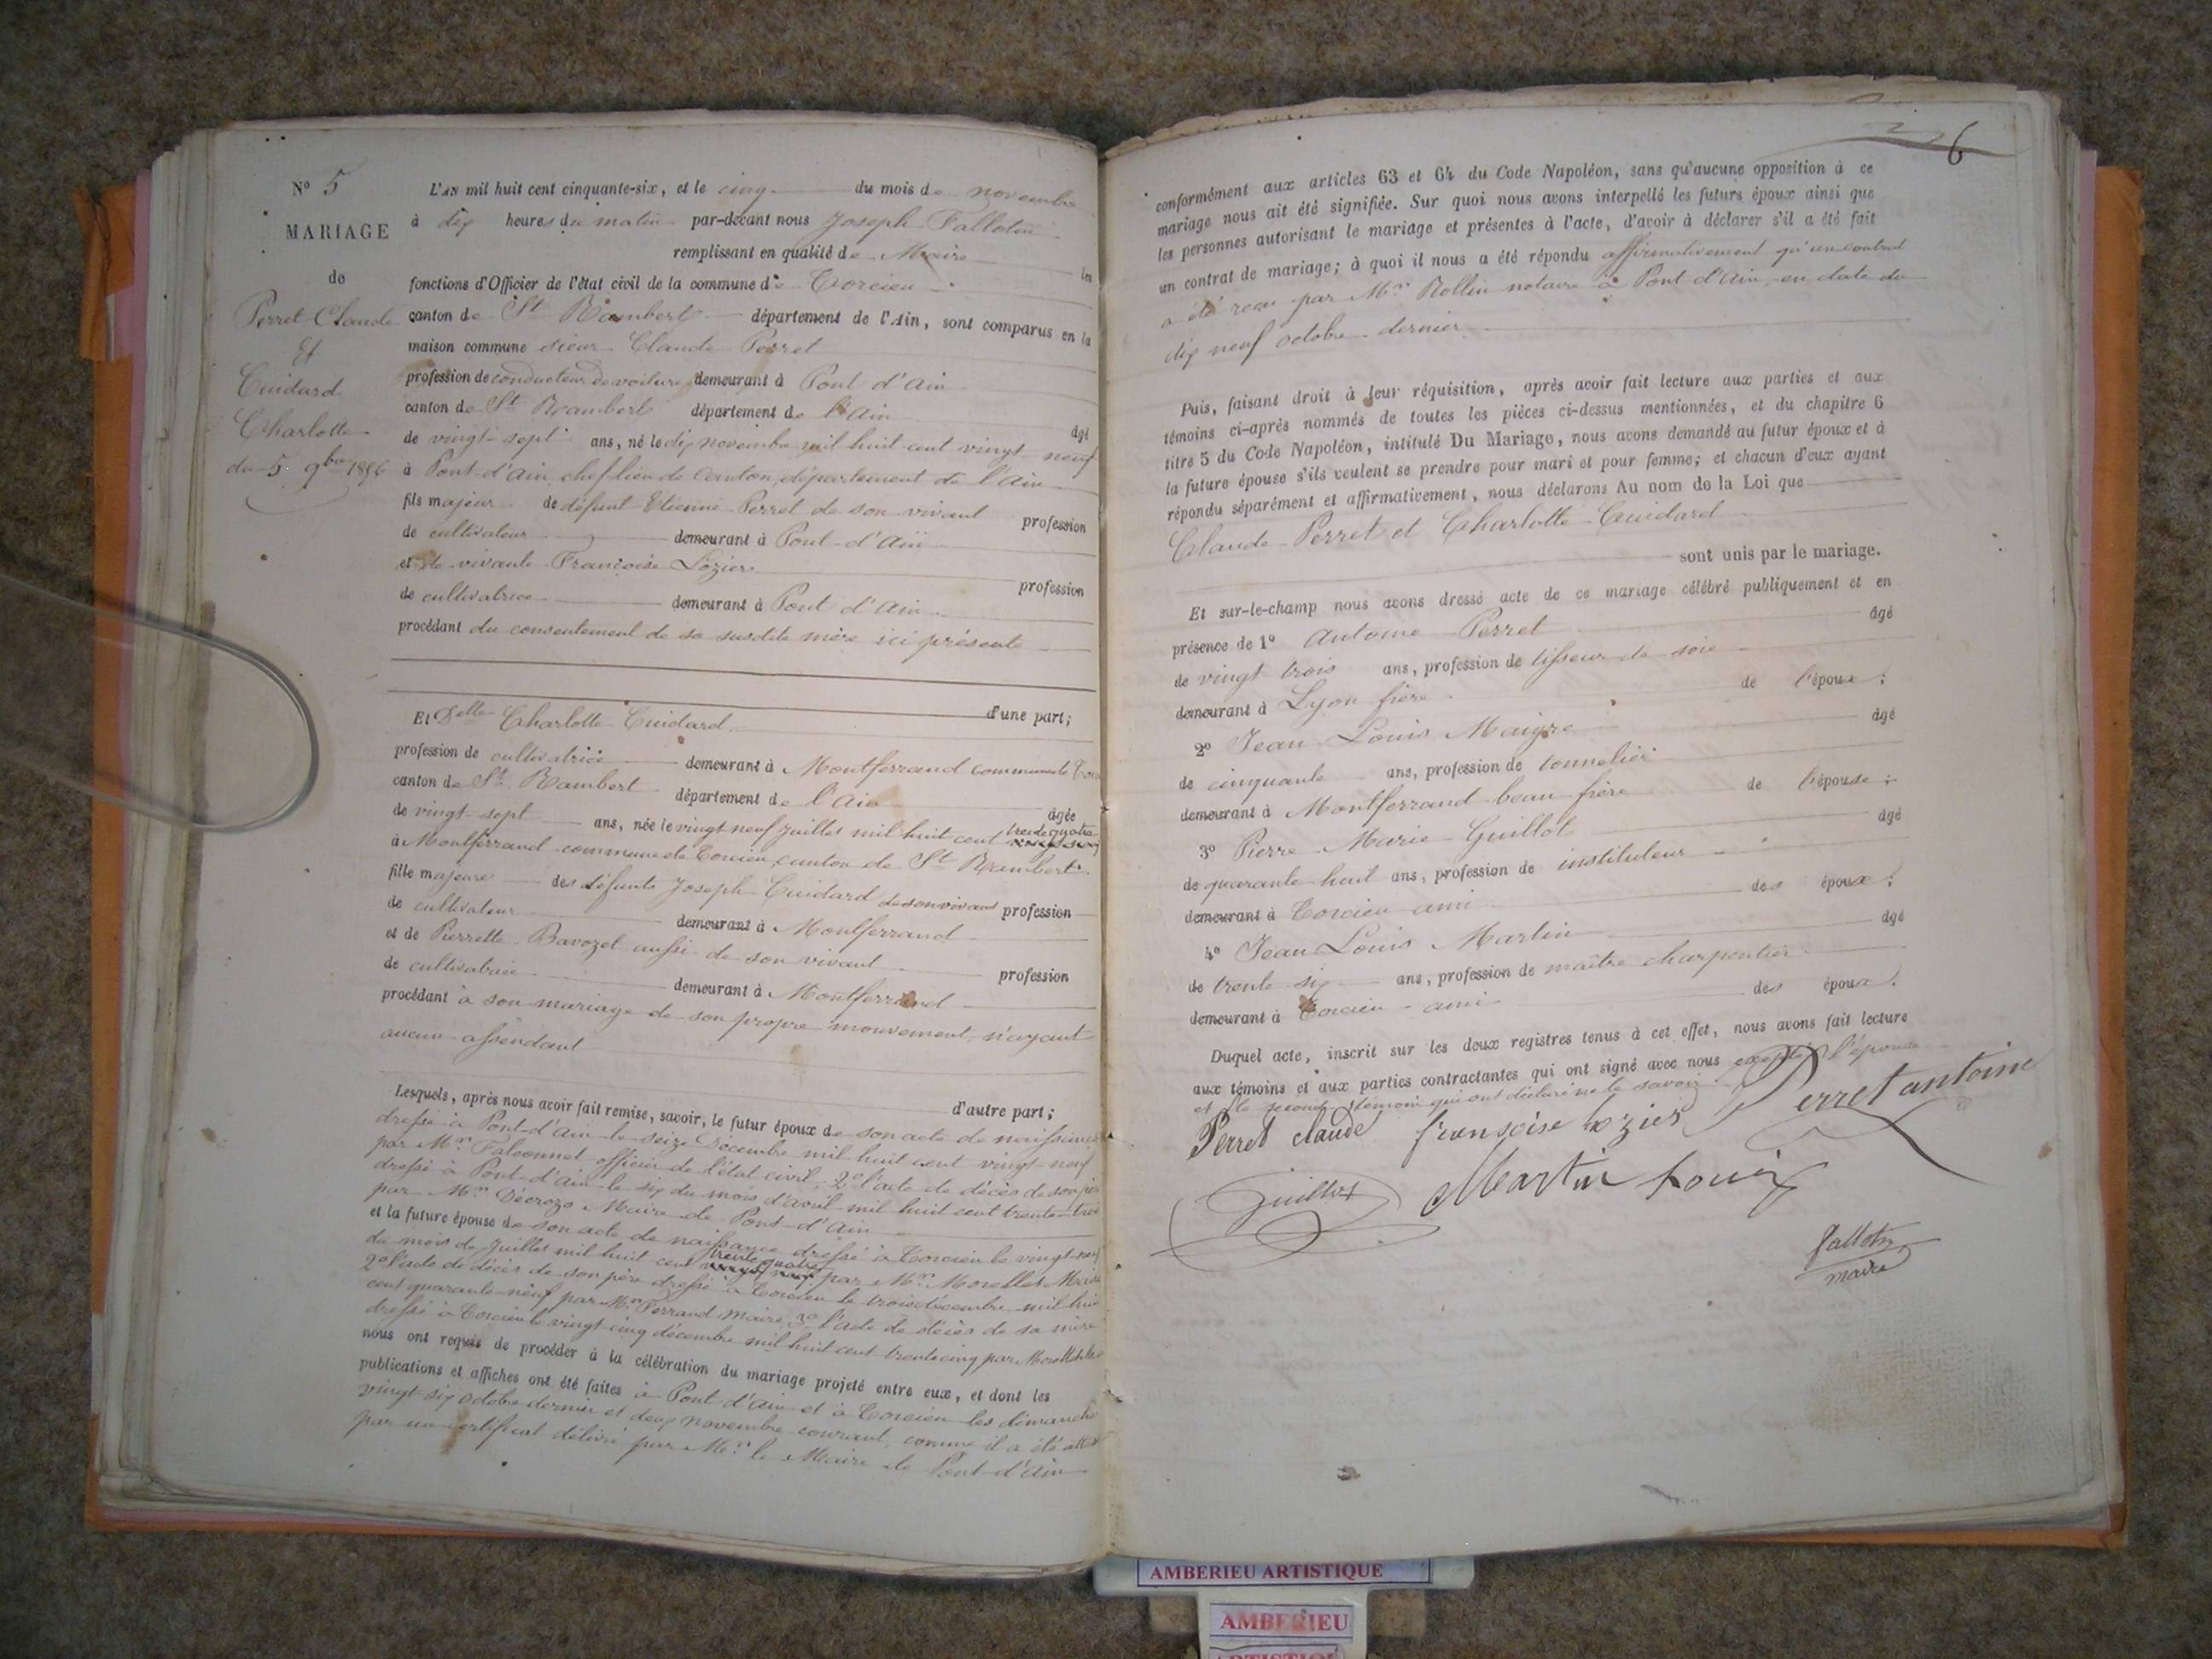 N° 5
MARIAGE
de
Perret Claude
Et
Cuidard
Charlotte
du 5 9bre 1856
L'AN mil huit cent cinquante-six, et le cinq du mois de novembre
à dix heures du matin par-devant nous Joseph Fallotin
remplissant en qualité de Maire les
fonctions d'Officier de l'état civil de la commune de Torcieu
canton de St Rambert département de l'Ain, sont comparus en la
maison commune sieur Claude Perret
profession de conducteur de voitures demeurant à Pont d'Ain
canton de St Rambert département de l'Ain âgé
de vingt-sept ans, né le dix novembre mil huit cent vingt-neuf
à Pont-d'Ain, chef lieu de Canton, département de l'Ain
fils majeur de défunt Etienne Perret de son vivant profession
de cultivateur demeurant à Pont-d'Ain
et de vivante Françoise Lozier profession
de cultivatrice demeurant à Pont d'Ain
procédant du consentement de sa susdite mère ici présente
d'une part;
Et Delle Charlotte Cuidard
profession de cultivatrice demeurant à Montferrand commune de
canton de St Rambert département de l'Ain âgée
de vingt-sept ans, née le vingt neuf juillet mil huit cent trente quatre
à Montferrand commune de Torcieu canton de St Rambert
fille majeure des défunts Joseph Cuidard de son vivant profession
de cultivateur demeurant à Montferrand
et de Pierrette Bavozet aussi de son vivant profession
de cultivatrice demeurant à Montferrand
procédant à son mariage de son propre mouvement, n'ayant
aucun assendant
d'autre part;
Lesquels, après nous avoir fait remise, savoir, le futur époux de son acte de naissance
dressé à Pont-d'Ain le seize Décembre mil huit cent vingt-neuf
par Mr Falconnet officier de l'état civil, 2° l'acte de décès de son père
dressé à Pont-d'Ain le six du mois d'avril mil huit cent trente-trois
par Mr Décrozo Maire de Pont-d'Ain
et la future épouse de son acte de naissance dressé à Torcieu le vingt-neuf
du mois de Juillet mil huit cent trente quatre par Mr Morellet Maire
2° l'acte de décès de son père dressé à Torcieu le trois décembre mil huit
cent quarante-neuf par Mr Ferrand Maire, 3° l'acte de décès de sa mère
dressé à Torcieu le vingt-cinq décembre mil huit cent trente cinq par Morellet
nous ont requis de procéder à la célébration du mariage projeté entre eux, et dont les
publications et affiches ont été faites à Pont d'Ain et à Torcieu les dimanche
vingt six octobre dernier et deux novembre courant, comme il a été
par un certificat délivré par Mr le Maire de Pont-d'Ain
6
conformément aux articles 63 et 64 du Code Napoléon, sans qu'aucune opposition à ce
mariage nous ait été signifiée. Sur quoi nous avons interpellé les futurs époux ainsi que
les personnes autorisant le mariage et présentes à l'acte, d'avoir à déclarer s'il a été fait
un contrat de mariage; à quoi il nous a été répondu affirmativement qu'un contrat
a été reçu par Mr Rollin notaire à Pont d'Ain, en date du
dix neuf octobre dernier
Puis, faisant droit à leur réquisition, après avoir fait lecture aux parties et aux
témoins ci-après nommés de toutes les pièces ci-dessus mentionnées, et du chapitre 6
titre 5 du Code Napoléon, intitulé Du Mariage, nous avons demandé au futur époux et à
la future épouse s'ils veulent se prendre pour mari et pour femme; et chacun d'eux ayant
répondu séparément et affirmativement, nous déclarons Au nom de la Loi que
Claude Perret et Charlotte Cuidard
sont unis par le mariage.
Et sur-le-champ nous avons dressé acte de ce mariage célébré publiquement et en
présence de 1° Antoine Perret âgé
de vingt trois ans, profession de tisseur de soie
demeurant à Lyon frère de l'époux;
2° Jean Louis Maigre âgé
de cinquante ans, profession de tonnelier
demeurant à Montferrand beau frère de l'épouse;
3° Pierre Marie Guillot âgé
de quarante huit ans, profession de instituteur
demeurant à Torcieu ami des époux;
4° Jean Louis Martin âgé
de trente six ans, profession de maître charpentier
demeurant à Torcieu ami des époux.
Duquel acte, inscrit sur les deux registres tenus à cet effet, nous avons fait lecture
aux témoins et aux parties contractantes qui ont signé avec nous excepté l'épouse
et le second témoin qui ont déclaré ne le savoir
Perret claude françoise lozier Perret antoine
Guillot Martin Louis
Fallotin
maire
AMBERIEU ARTISTIQUE
AMBERIEU
ARTISTIQUE